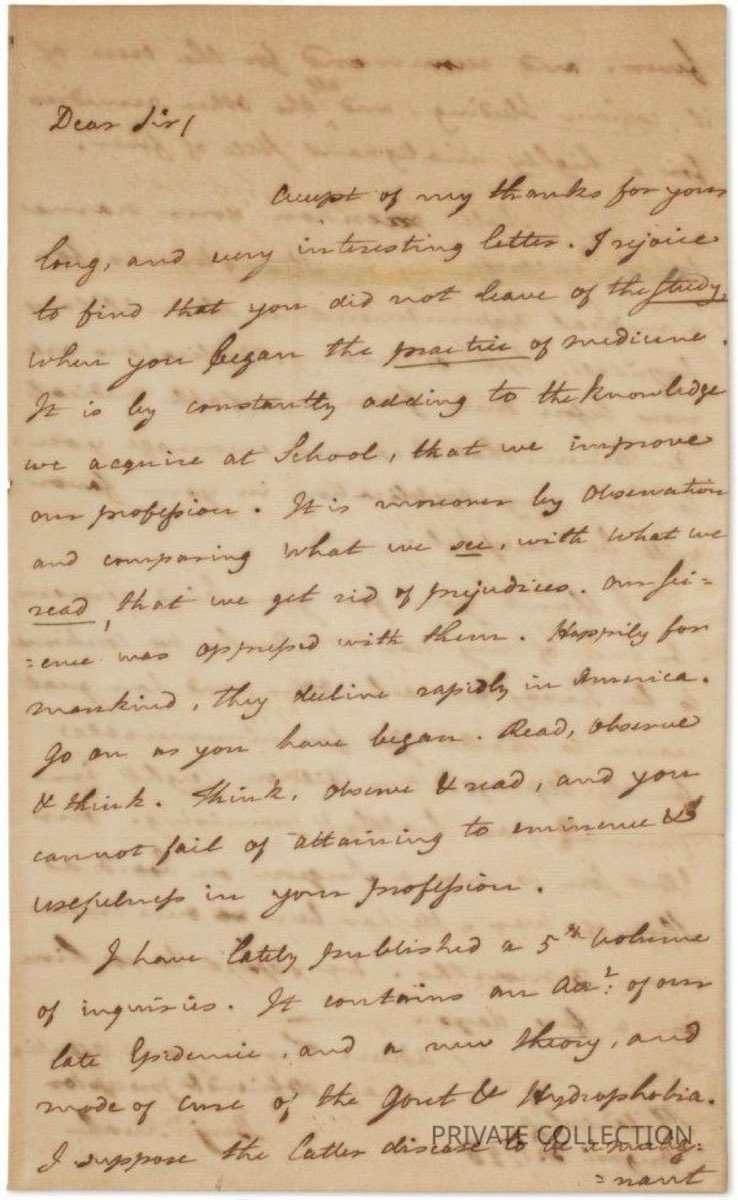 Dear Sir/
Accept of my thanks for your
long, and very interesting letter. I rejoice
to find that you did not leave of the study,
when you began the practice of medicine.
It is by constantly adding to the knowledge
we acquire at School, that we improve
our profession. It is moreover by observation
and comparing what we see, with what we
read, that we get rid of prejudices. Our sci=
=ence was oppressed with them. Happily for
mankind, they decline rapidly in America.
Go on as you have began. Read, observe
& think. Think, observe & read, and you
cannot fail of attaining to eminence &
usefulness in your profession.
I have lately published a 5th volume
of inquiries. It contains an Acct: of our
late Epidemic, and a new theory, and
mode of cure of the Gout & Hydrophobia.
I suppose the latter disease to be a malig=
=nant
PRIVATE COLLECTION